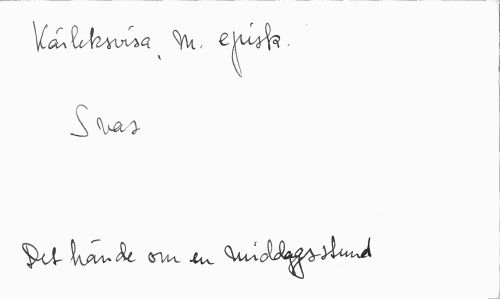 Kärleksvisa, m. episk.
Svas
Det hände om en middagsstund